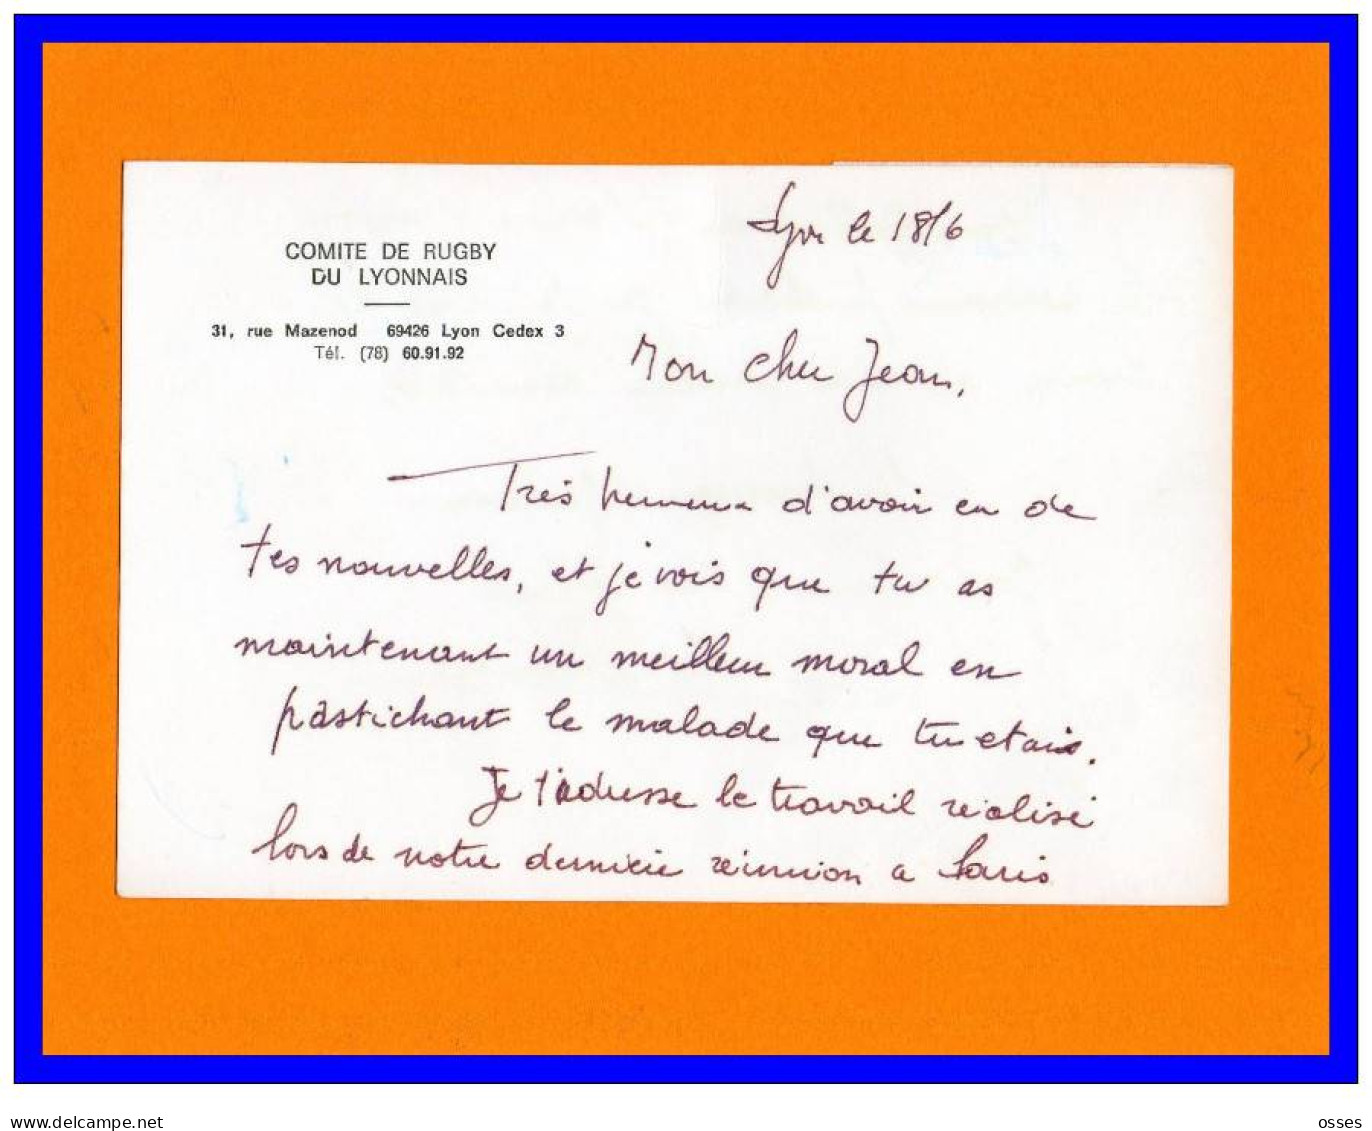 COMITE DE RUGBY
DU LYONNAIS
31, rue Mazenod 69426 Lyon Cedex 3
Tél. (78) 60.91.92
Lyon le 18/6
Mon cher Jean,
Très heureux d'avoir eu de
tes nouvelles, et je vois que tu as
maintenant un meilleur moral en
pastichant le malade que tu etais.
Je t'adresse le travail réalisé
lors de notre dernière réunion a Paris
www.delcampe.net
osses